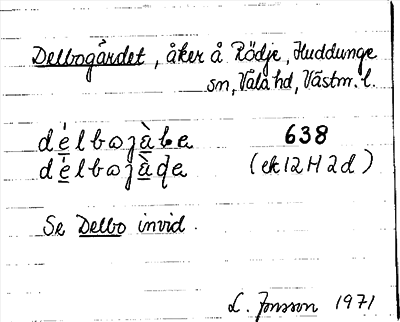 Delbogärdet, åker å Rödje, Huddunge
sn, Våla hd, Västm. l.
délbωjàbe 638
délbωjàde (ek 12 H 2d)
Se Delbo invid.
L. Jonsson 1971